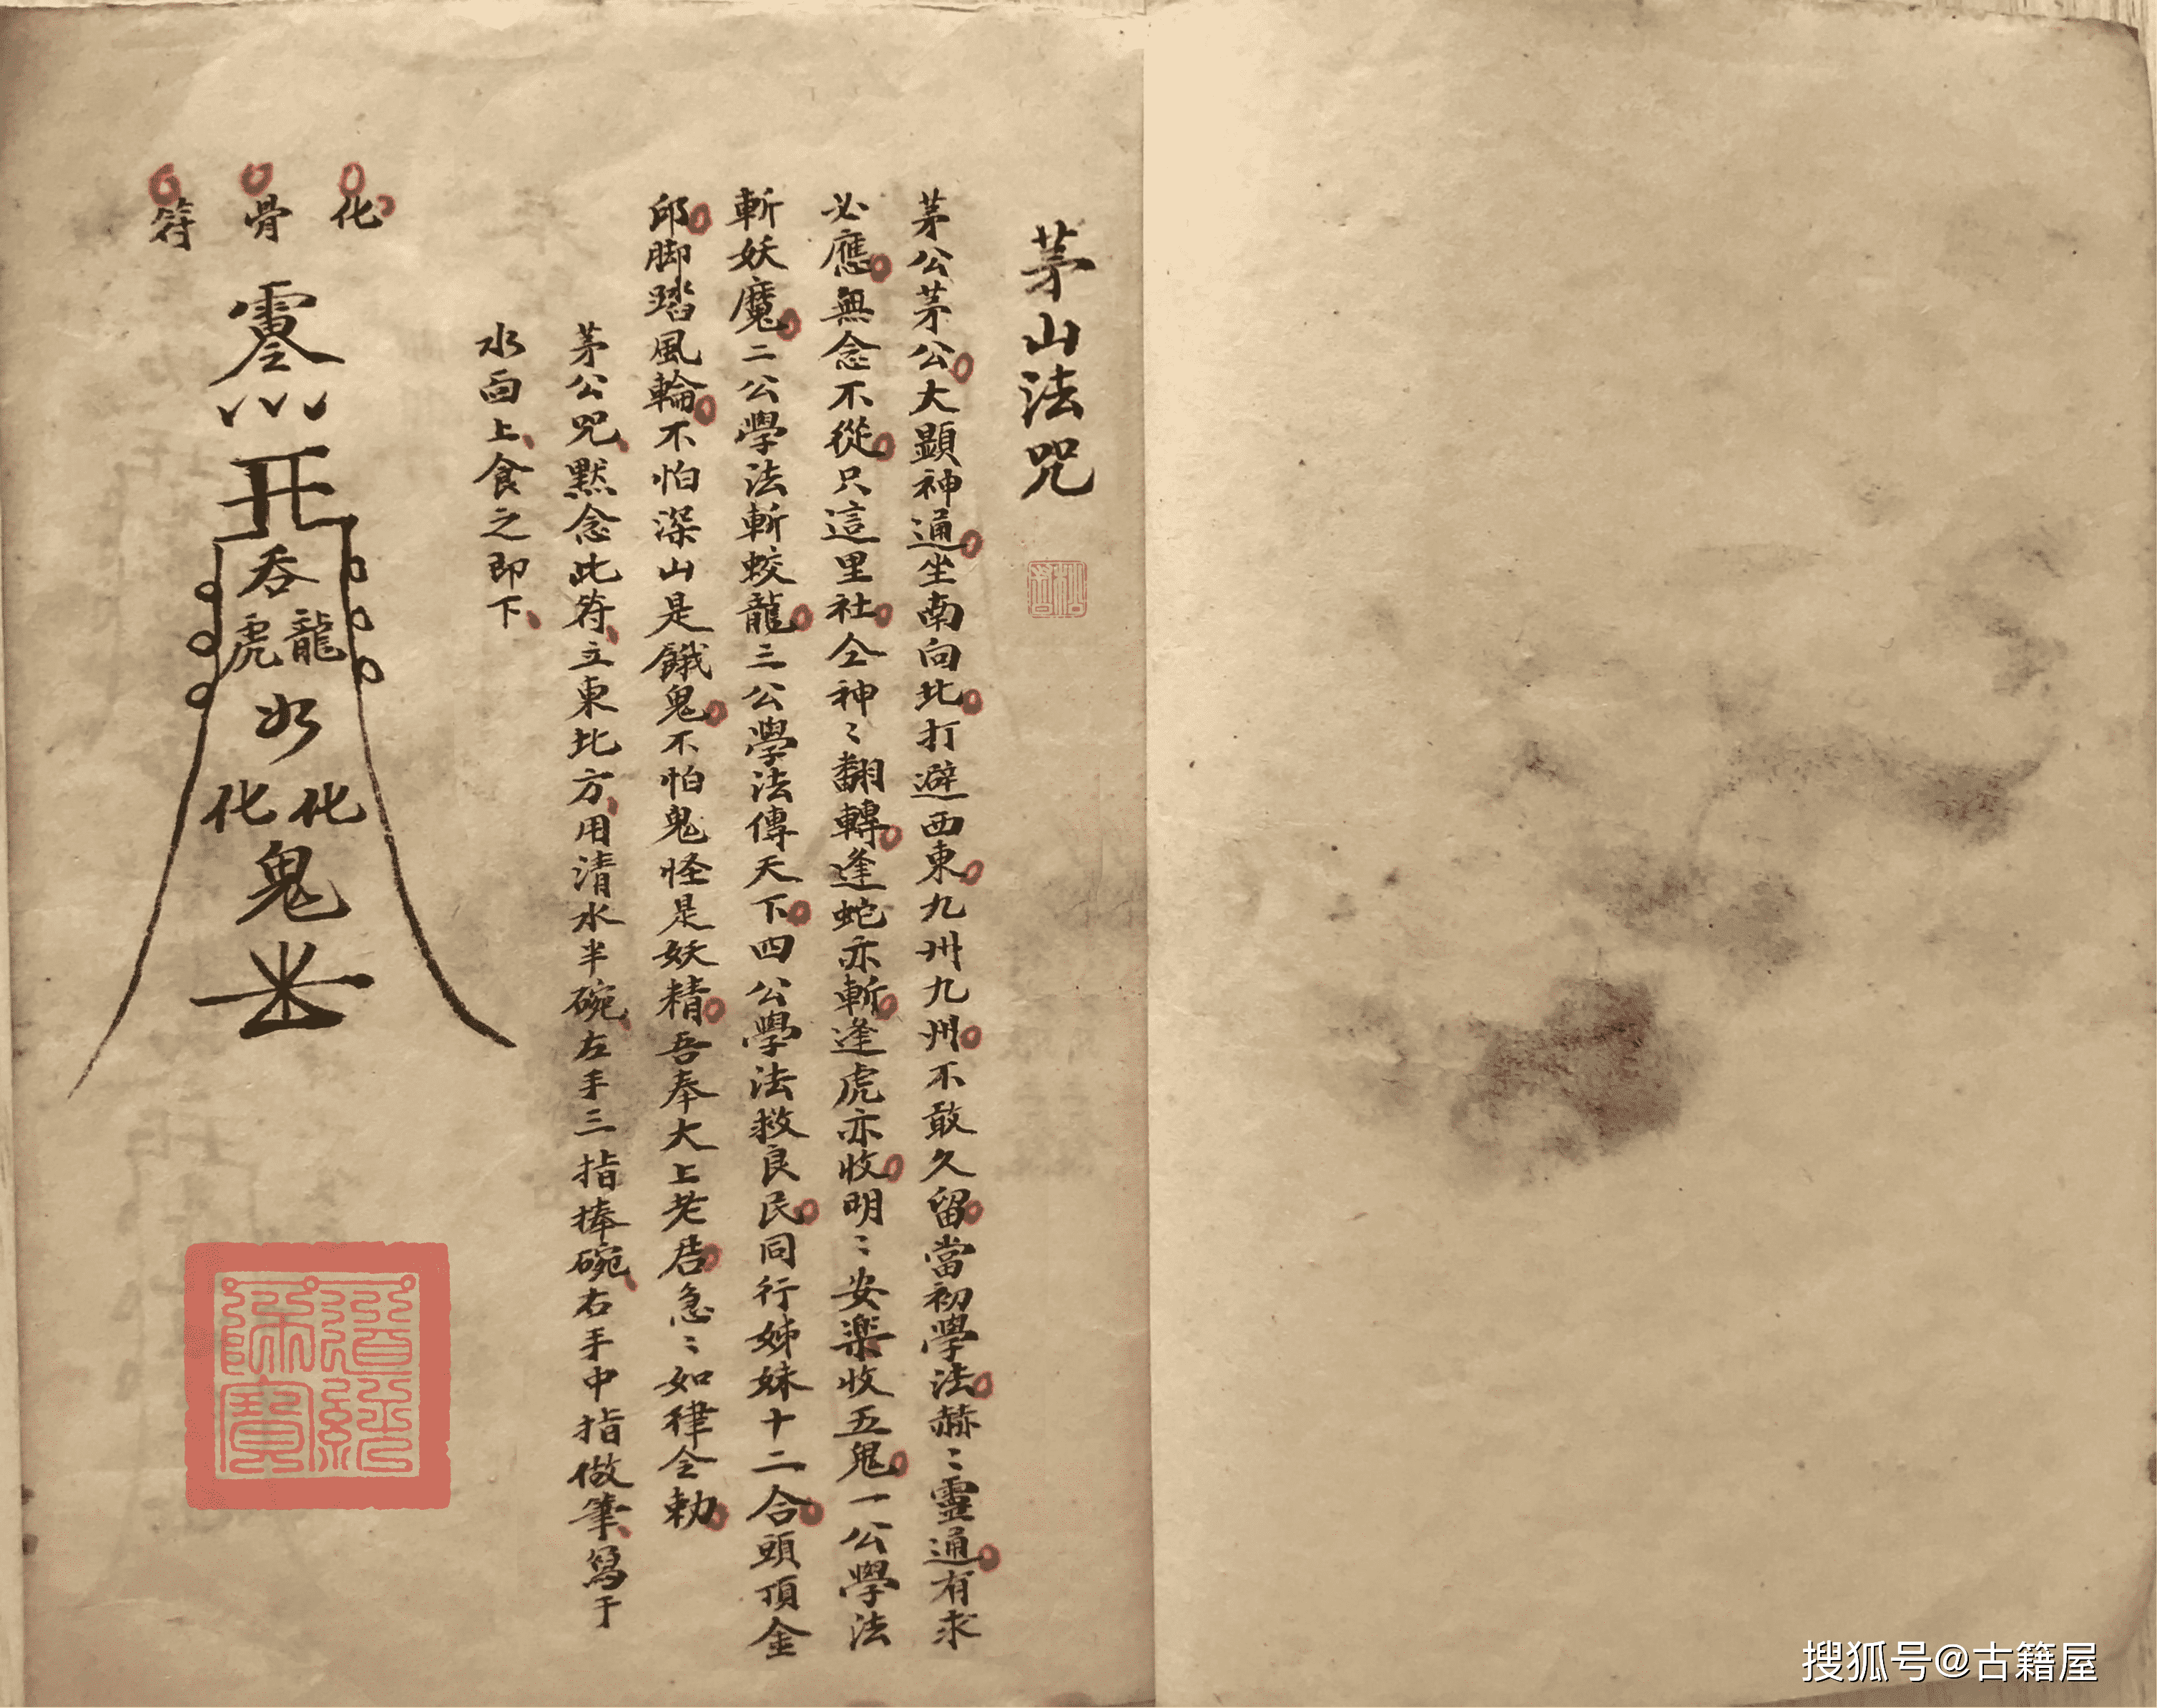 茅山法咒
茅公茅公大顯神通坐南向北打避西東九州九州不敢久留當初學法赫〻靈通有求
必應無念不從只這里社仝神〻翻轉逢蛇亦斬逢虎亦收明〻安楽收五鬼一公學法
斬妖魔二公學法斬蛟龍三公學法傳天下四公學法救良民同行姊妹十二合頭頂金
邱脚踏風輪不怕深山是餓鬼不怕鬼怪是妖精吾奉大上老君急〻如律令勅
茅公咒默念此符立東北方用清水半碗左手三指捧碗右手中指做筆寫于
水面上食之即下
化骨符
吞
龍虎
化化
鬼
道經師寶
搜狐号@古籍屋